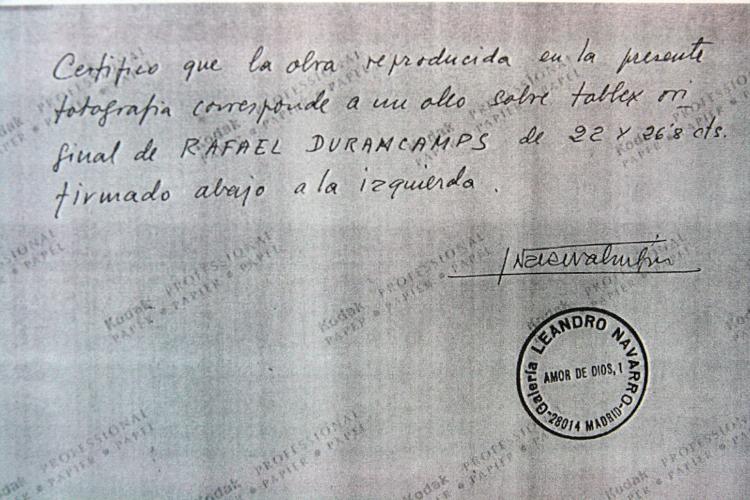 Certifico que la obra reproducida en la presente
fotografia corresponde a un oleo sobre tablex ori
ginal de RAFAEL DURANCAMPS de 22 x 26'8 cts.
firmado abajo a la izquierda.
Galería LEANDRO NAVARRO
AMOR DE DIOS, 1
-28014 MADRID-
Kodak PROFESSIONAL
PAPER • PAPIER • PAPEL